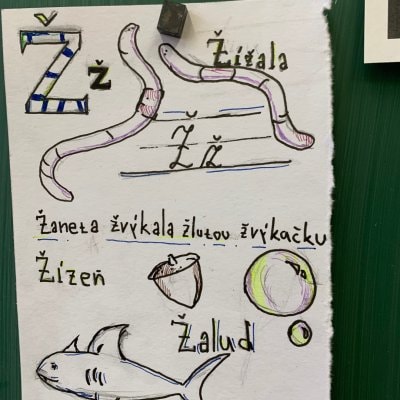 Ž ž
Žížala
Ž ž
Žaneta žvýkala žlutou žvýkačku
Žízeň
Žalud